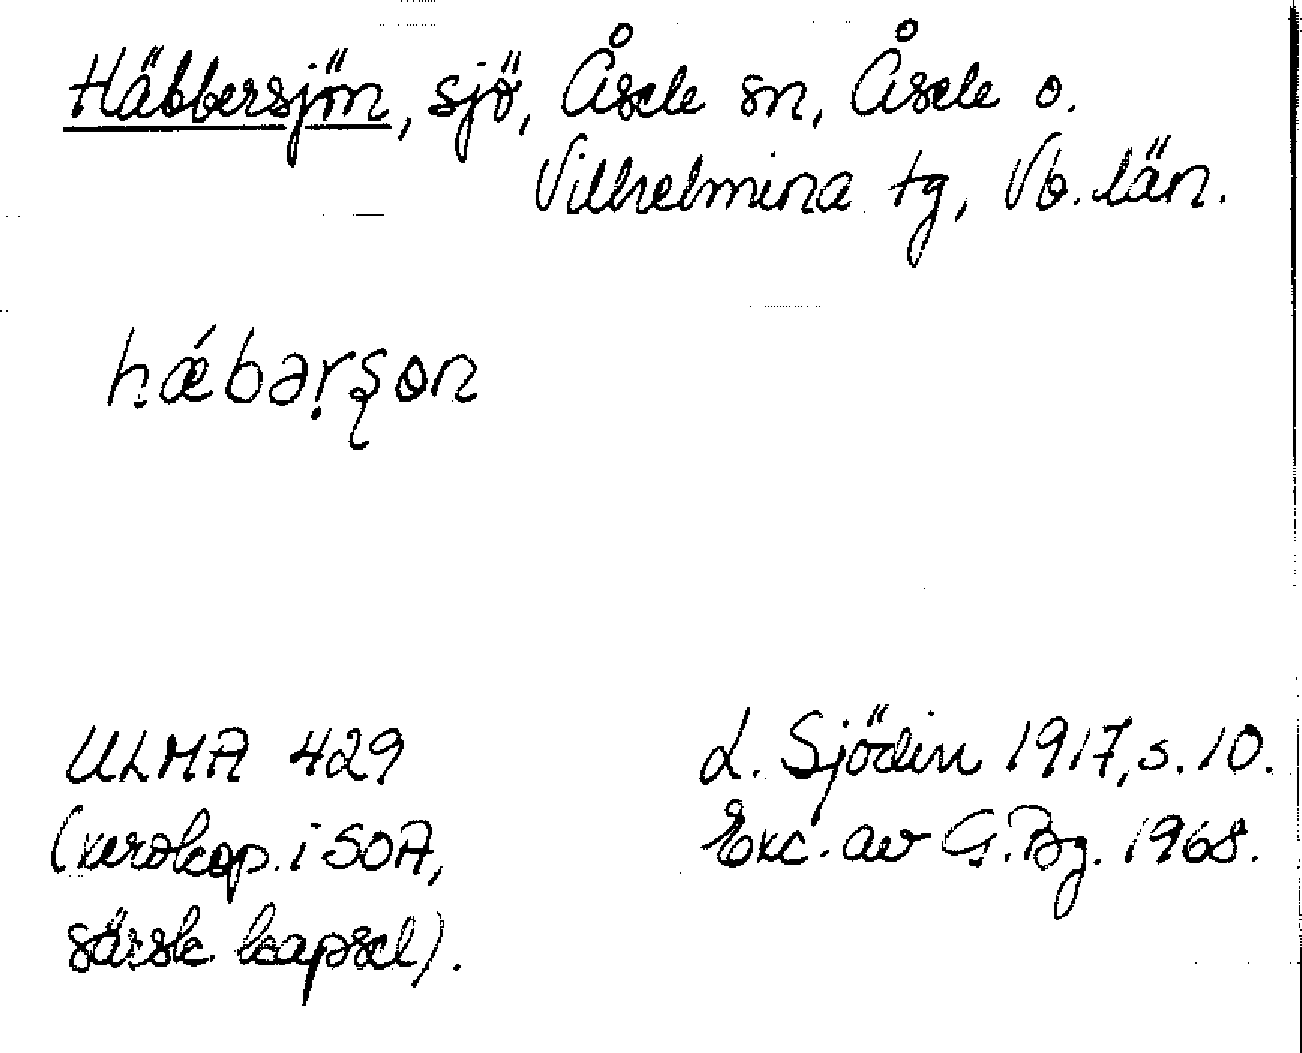 Häbbersjön, sjö, Åsele sn, Åsele o.
Vilhelmina tg, Vb. län.
hǽbərʂon
ULMA 429
(xerokop. i SOA,
särsk kapsel).
L. Sjödin 1917, s. 10.
Exc. av G. Bg. 1968.